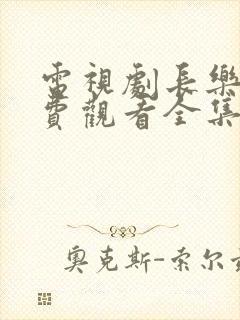 電視劇長樂
費觀看全集
奧克斯-索尔